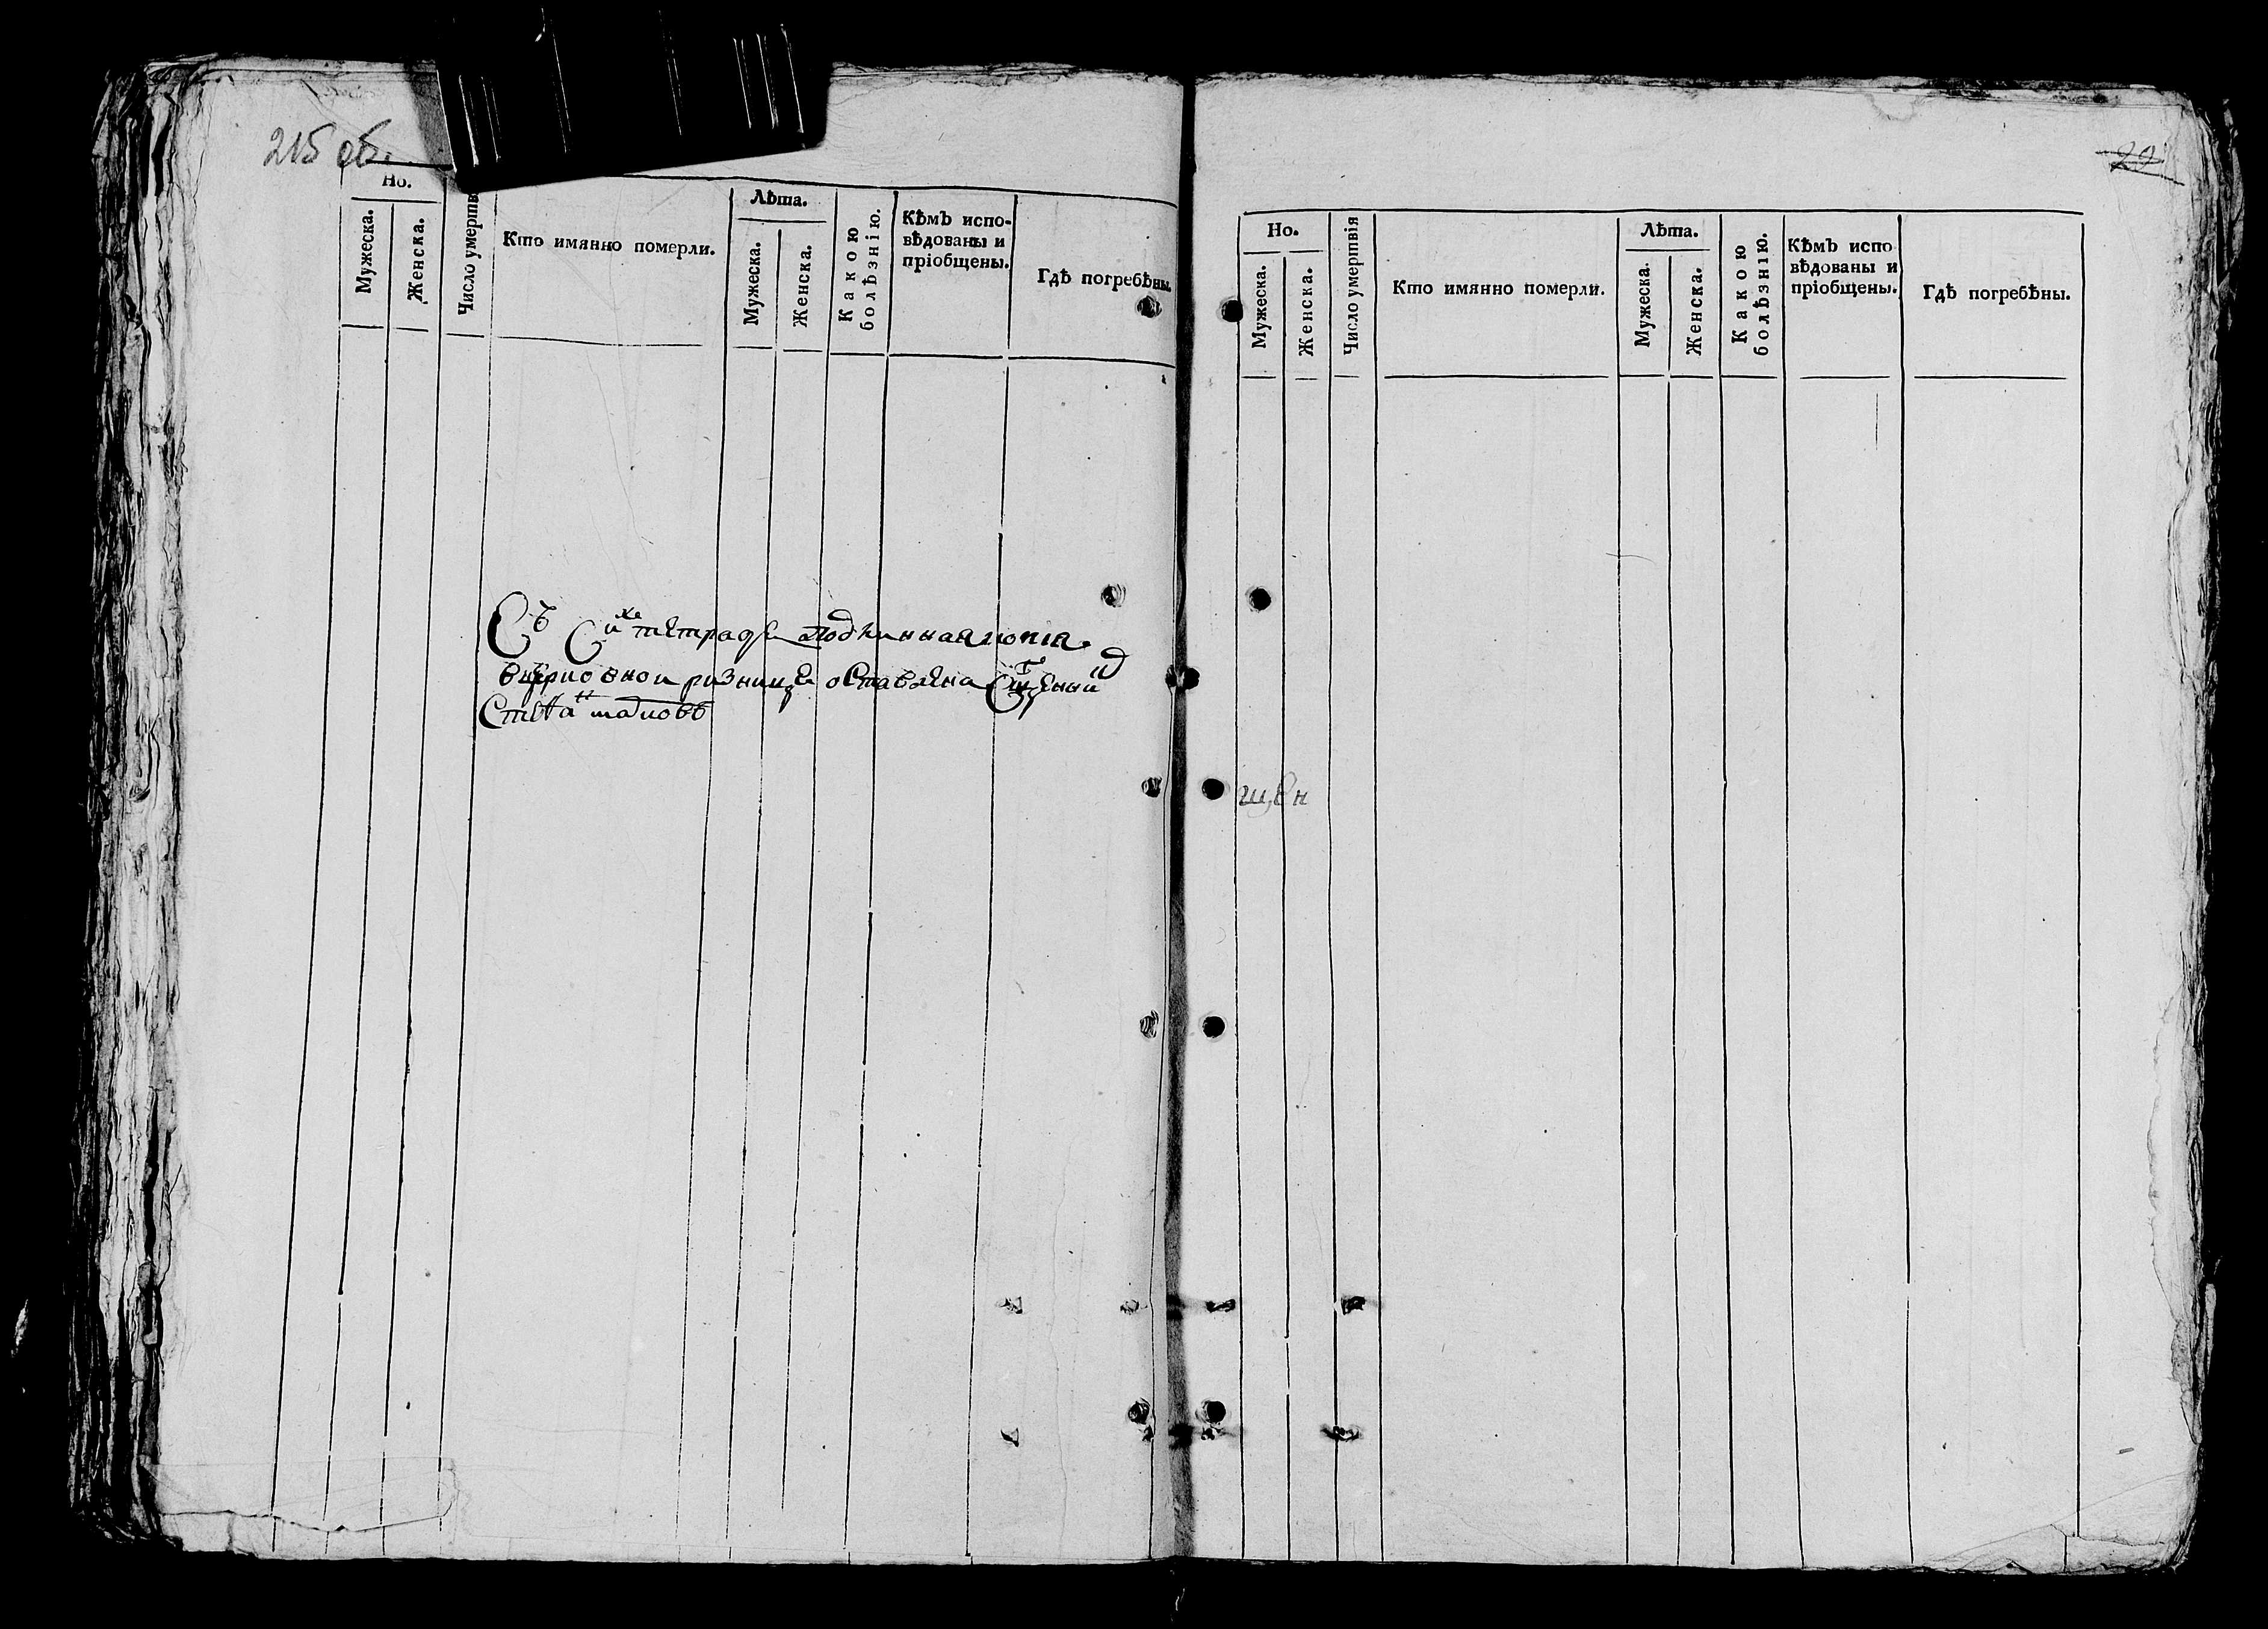 215 об.
Но.
Мужеска.
Женска.
Число умертв
Кто имянно померли.
Лѣта.
Мужеска.
Женска.
Какою
болѣзнію.
Кѣмъ испо-
вѣдованы и
пріобщены.
Гдѣ погребѣны.
Съ сихъ тетрадеи подлинная копія
в церковнои ризницѣ оставлена
29
Но.
Мужеска.
Женска.
Число умертвія
Кто имянно померли.
Лѣта.
Мужеска.
Женска.
Какою
болѣзнію.
Кѣмъ испо
вѣдованы и
пріобщены.
Гдѣ погребѣны.
щен